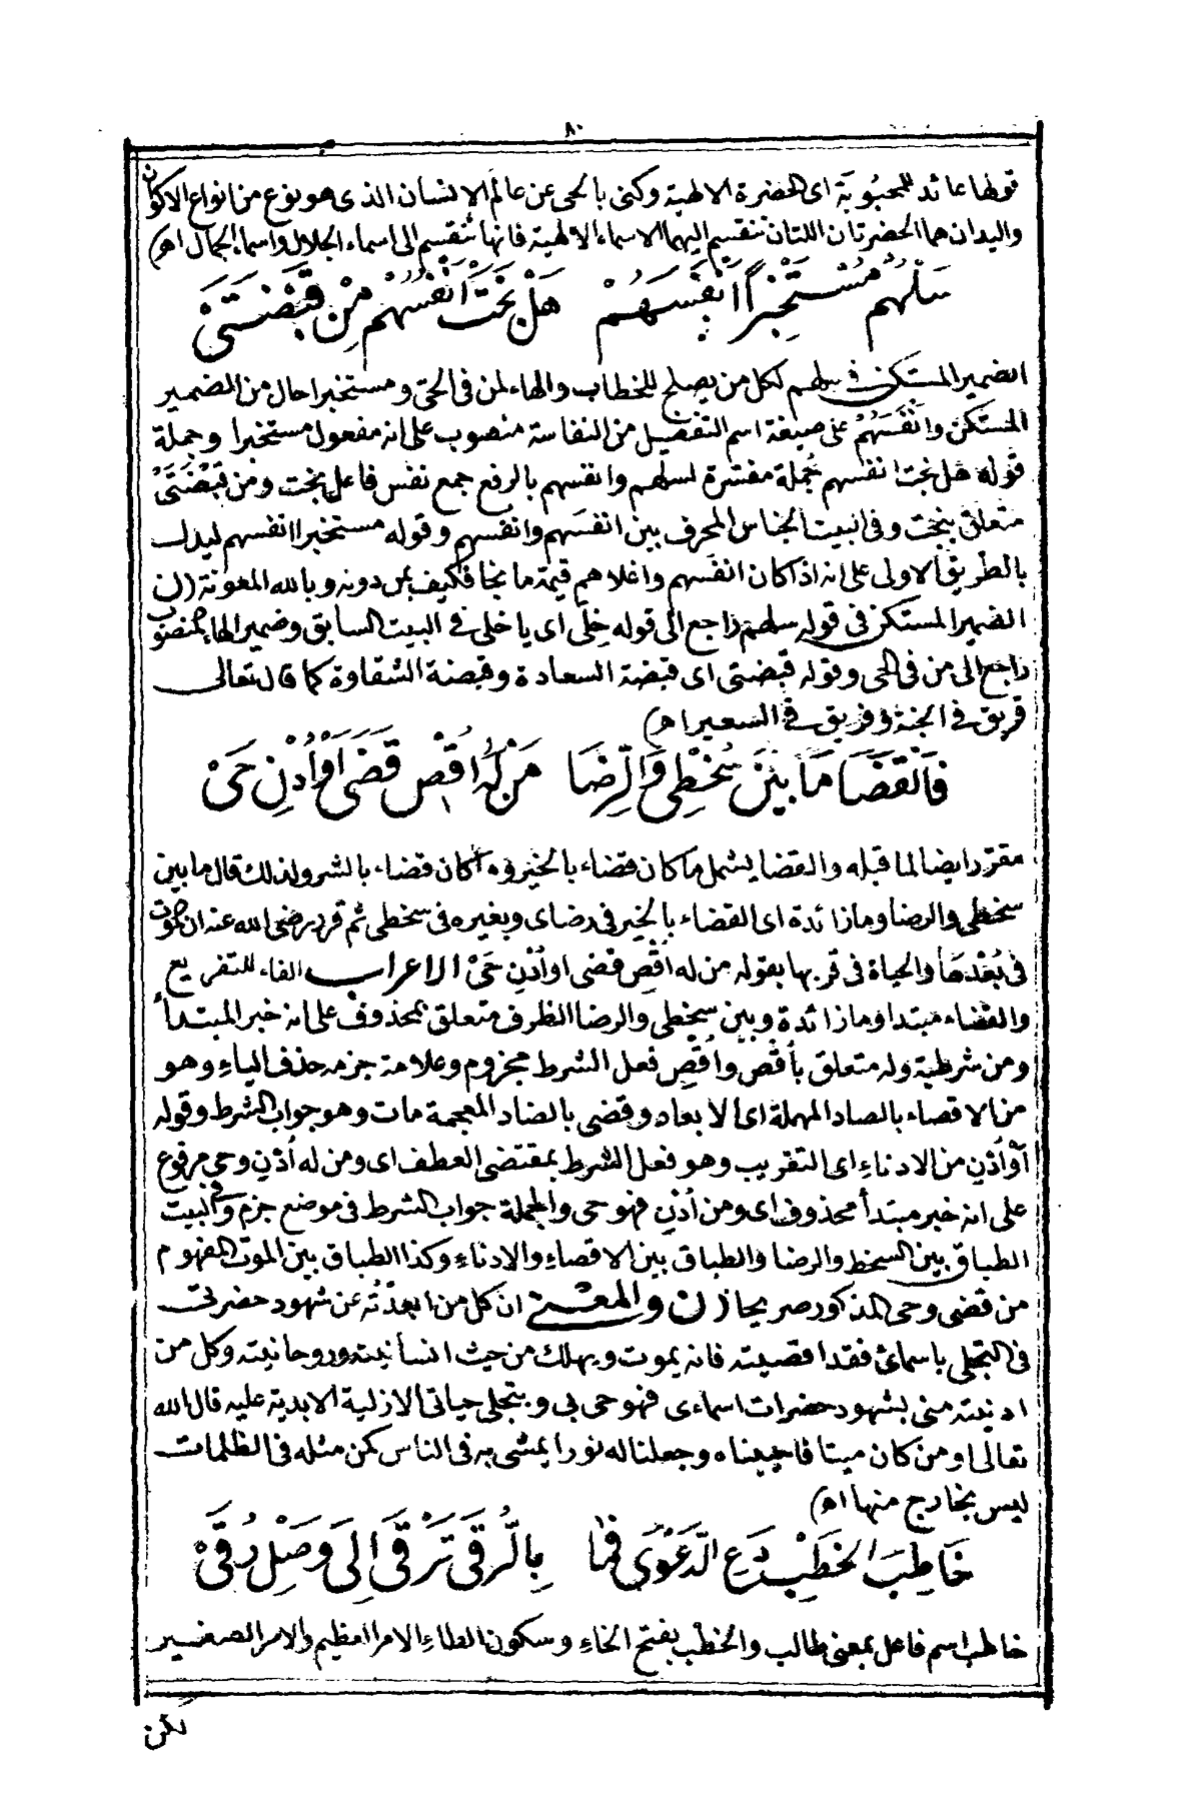 ٨٠
قولها عائد للمحبوبة اى الحضرة الالهية وكنى بالحى عن عالم الانسان الذى هو نوع من انواع الاكوان
واليدان هما الحضرتان اللتان تنقسم اليهما الاسماء الالهية فانها تنقسم الى اسماء الجلال واسماء الجمال اه)
سَلْهُمُ مُسْتَخْبِرًا اَنْفَسَهُمْ هَلْ نَجَتْ اَنْفُسُهُمْ مِنْ قَبْضَتَىْ
الضمير المستكن فى سلهم لكل من يصلح للخطاب والهاء لمن فى الحى ومستخبرا حال من الضمير
المستكن وانْفَسَهُمْ على صيغة اسم التفضيل من النفاسة منصوب على انه مفعول مستخبرا وجملة
قوله هل نجت انفسهم جُملة مفسّرة لسلهم وانفسهم بالرفع جمع نفس فاعل نجت ومن قَبْضَتَىْ
متعلق بنجت وفى البيت الجناس المحرف بين انفَسَهم وانفُسهم وقوله مستخبرا انفسهم ليدل
بالطريق الاولى على انه اذا كان انفَسهم واغلاهم قيمة ما نجا فكيف بمن دونه وبالله المعونة (ن
الضمير المستكن فى قوله سلهم راجع الى قوله خِلّى اى يا خلى فى البيت السابق وضمير الهاء المنصوب
راجع الى من فى الحى وقوله قبضتى اى قبضة السعادة وقبضة الشقاوة كما قال تعالى
فريق فى الجنة وفريق فى السعير اه)
فَالْقَضَا مَا بَيْنَ سُخْطِى وَالرِّضَا مَنْ لَهُ اُقْصِ قَضَى اَوْ اُدْنِ حَىْ
مقرّر ايضا لما قبله والقضا يشمل ما كان قضاء بالخير وما كان قضاء بالشر ولذلك قال ما بين
سخطى والرضا وما زائدة اى القضاء بالخير فى رضاى وبغيره فى سخطى ثم قرر رضى الله عنه ان الموت
فى بُعْدهَا والحياة فى قربها بقوله من له اُقْصِ قضى او اُدْنِ حَىْ الاعراب الفاء للتفريع
والقضاء مبتدا وما زائدة وبين سخطى والرضا الظرف متعلق بمحذوف على انه خبر المبتدأ
ومن شرطية وله متعلق بأقص واُقْصِ فعل الشرط مجزوم وعلامة جزمه حذف الياءِ وهو
من الاقصاء بالصاد المهملة اى الابعاد وقضى بالضاد المعجمة مات وهو جواب الشرط وقوله
اَوْ اُدْنِ من الادناءِ اى التقريب وهو فعل الشرط بمقتضى العطف اى ومن له اُدْنِ وحى مرفوع
على انه خبر مبتدأ محذوف اى ومن اُدْنِ فهو حى والجملة جواب الشرط فى موضع جزم وفى البيت
الطباق بين السخط والرضا والطباق بين الاقصاءِ والادناءِ وكذا الطباق بين الموت المفهوم
من قضى وحى المذكور صريحا (ن والمعنى ان كل من ابعدتُه عن شهود حضرتى
فى التجلى باسمائى فقد اقصيته فانه يموت ويهلك من حيث انسانيته وروحانيته وكل من
ادنيته منى بشهود حضرات اسماءى فهو حى بى وبتجلى حياتى الازلية الابدية عليه قال الله
تعالى او من كان ميتا فاحييناه وجعلنا له نورا يمشى به فى الناس كمن مثله فى الظلمات
ليس بخارج منها اه)
خَاطِبَ الخَطْبِ دَعِ الدَّعْوَى فَمَا بِالرُّقَى تَرْقَى اِلَى وَصْلِ رُقَىْ
خاطب اسم فاعل بمعنى طالب والخطْب بفتح الخاءِ وسكون الطاءِ الامر العظيم والامر الصغير
لكن